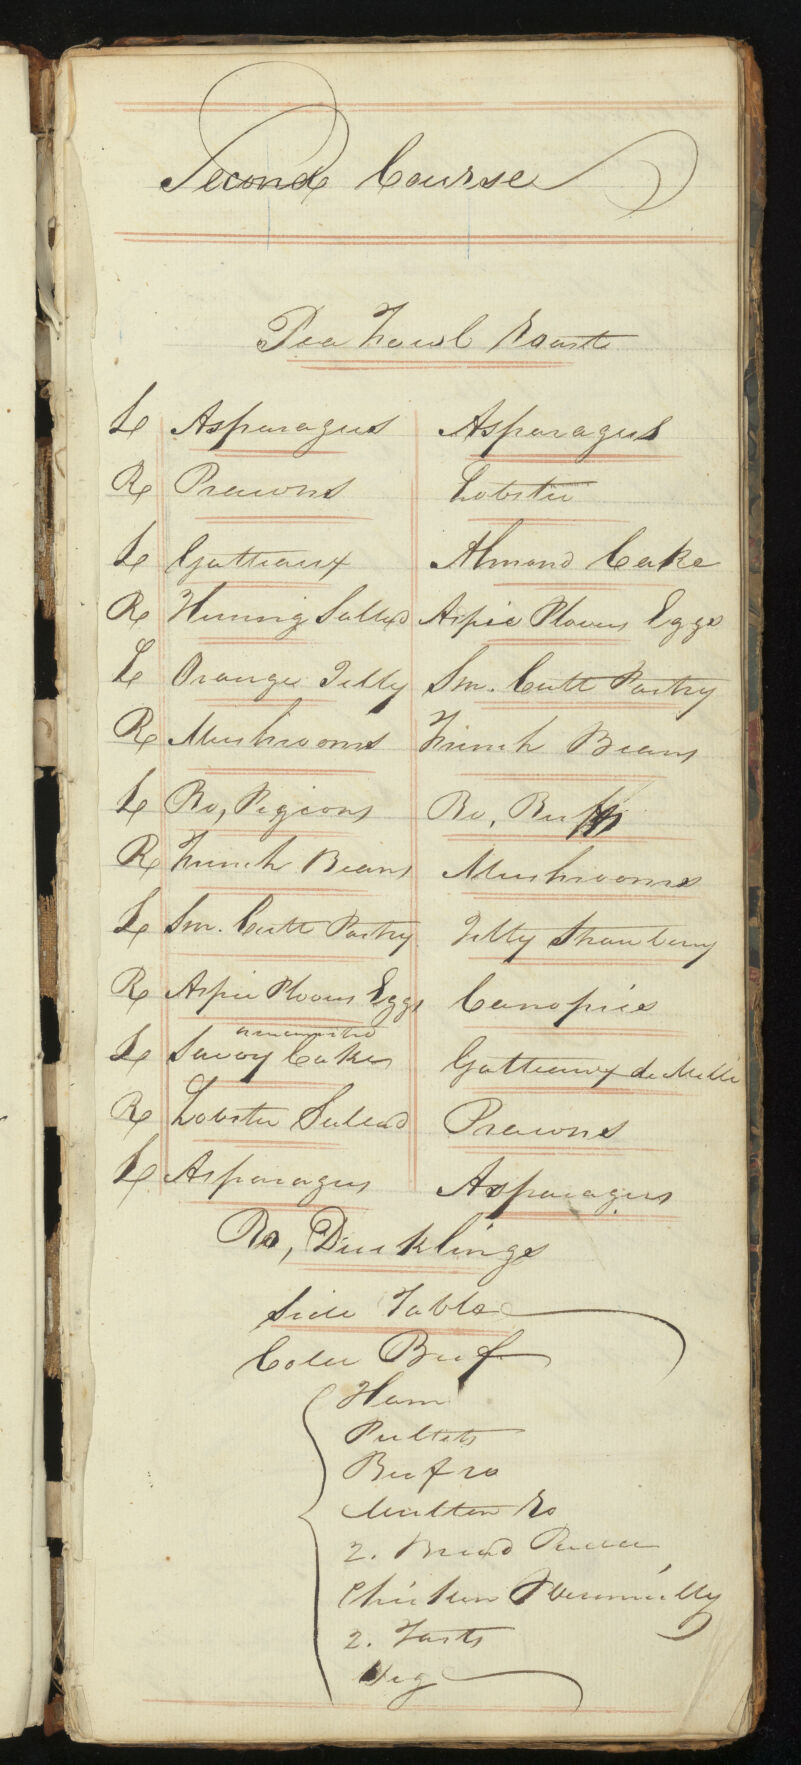 Second Course
Pea Fowl Roast
L Asparagus Asparagus
R Prawns Lobster
L Gatteaux Almond Cake
R Herring Sallad Aspic Plovers Eggs
L Orange Jelly Sm. Cutt Pastry
R Mushrooms French Beans
L Ro, Pigeons Ro, Ruffs
R French Beans Mushrooms
L Sm. Cutt Pastry Jelly Strawberry
R Aspic Plovers Eggs Canopies
L Savoy Cake Gatteaux de Mille
R Lobster Salad Prawns
L Asparagus Asparagus
Ro, Ducklings
Side Table
Cold Beef
Ham
Pullets
Beef ro
Mutton Ro
2. Bread
Chicken Vermicilly
2. Tarts
Veg